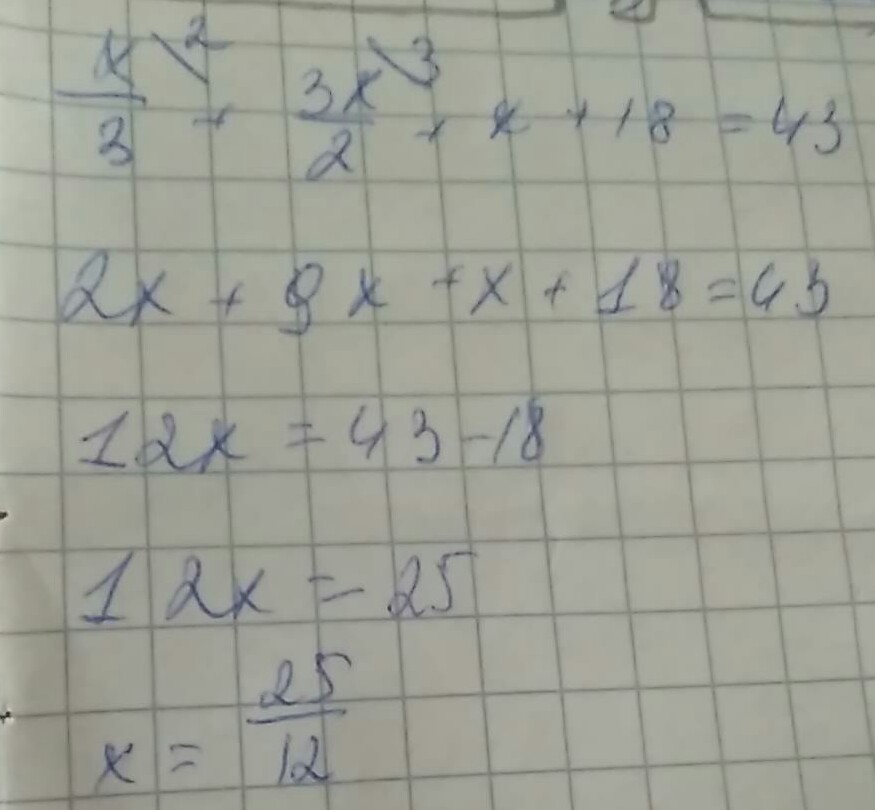 x/3 \2 + 3x/2 \3 + x + 18 = 43
2x + 9x + x + 18 = 43
12x = 43 - 18
12x = 25
x = 25/12